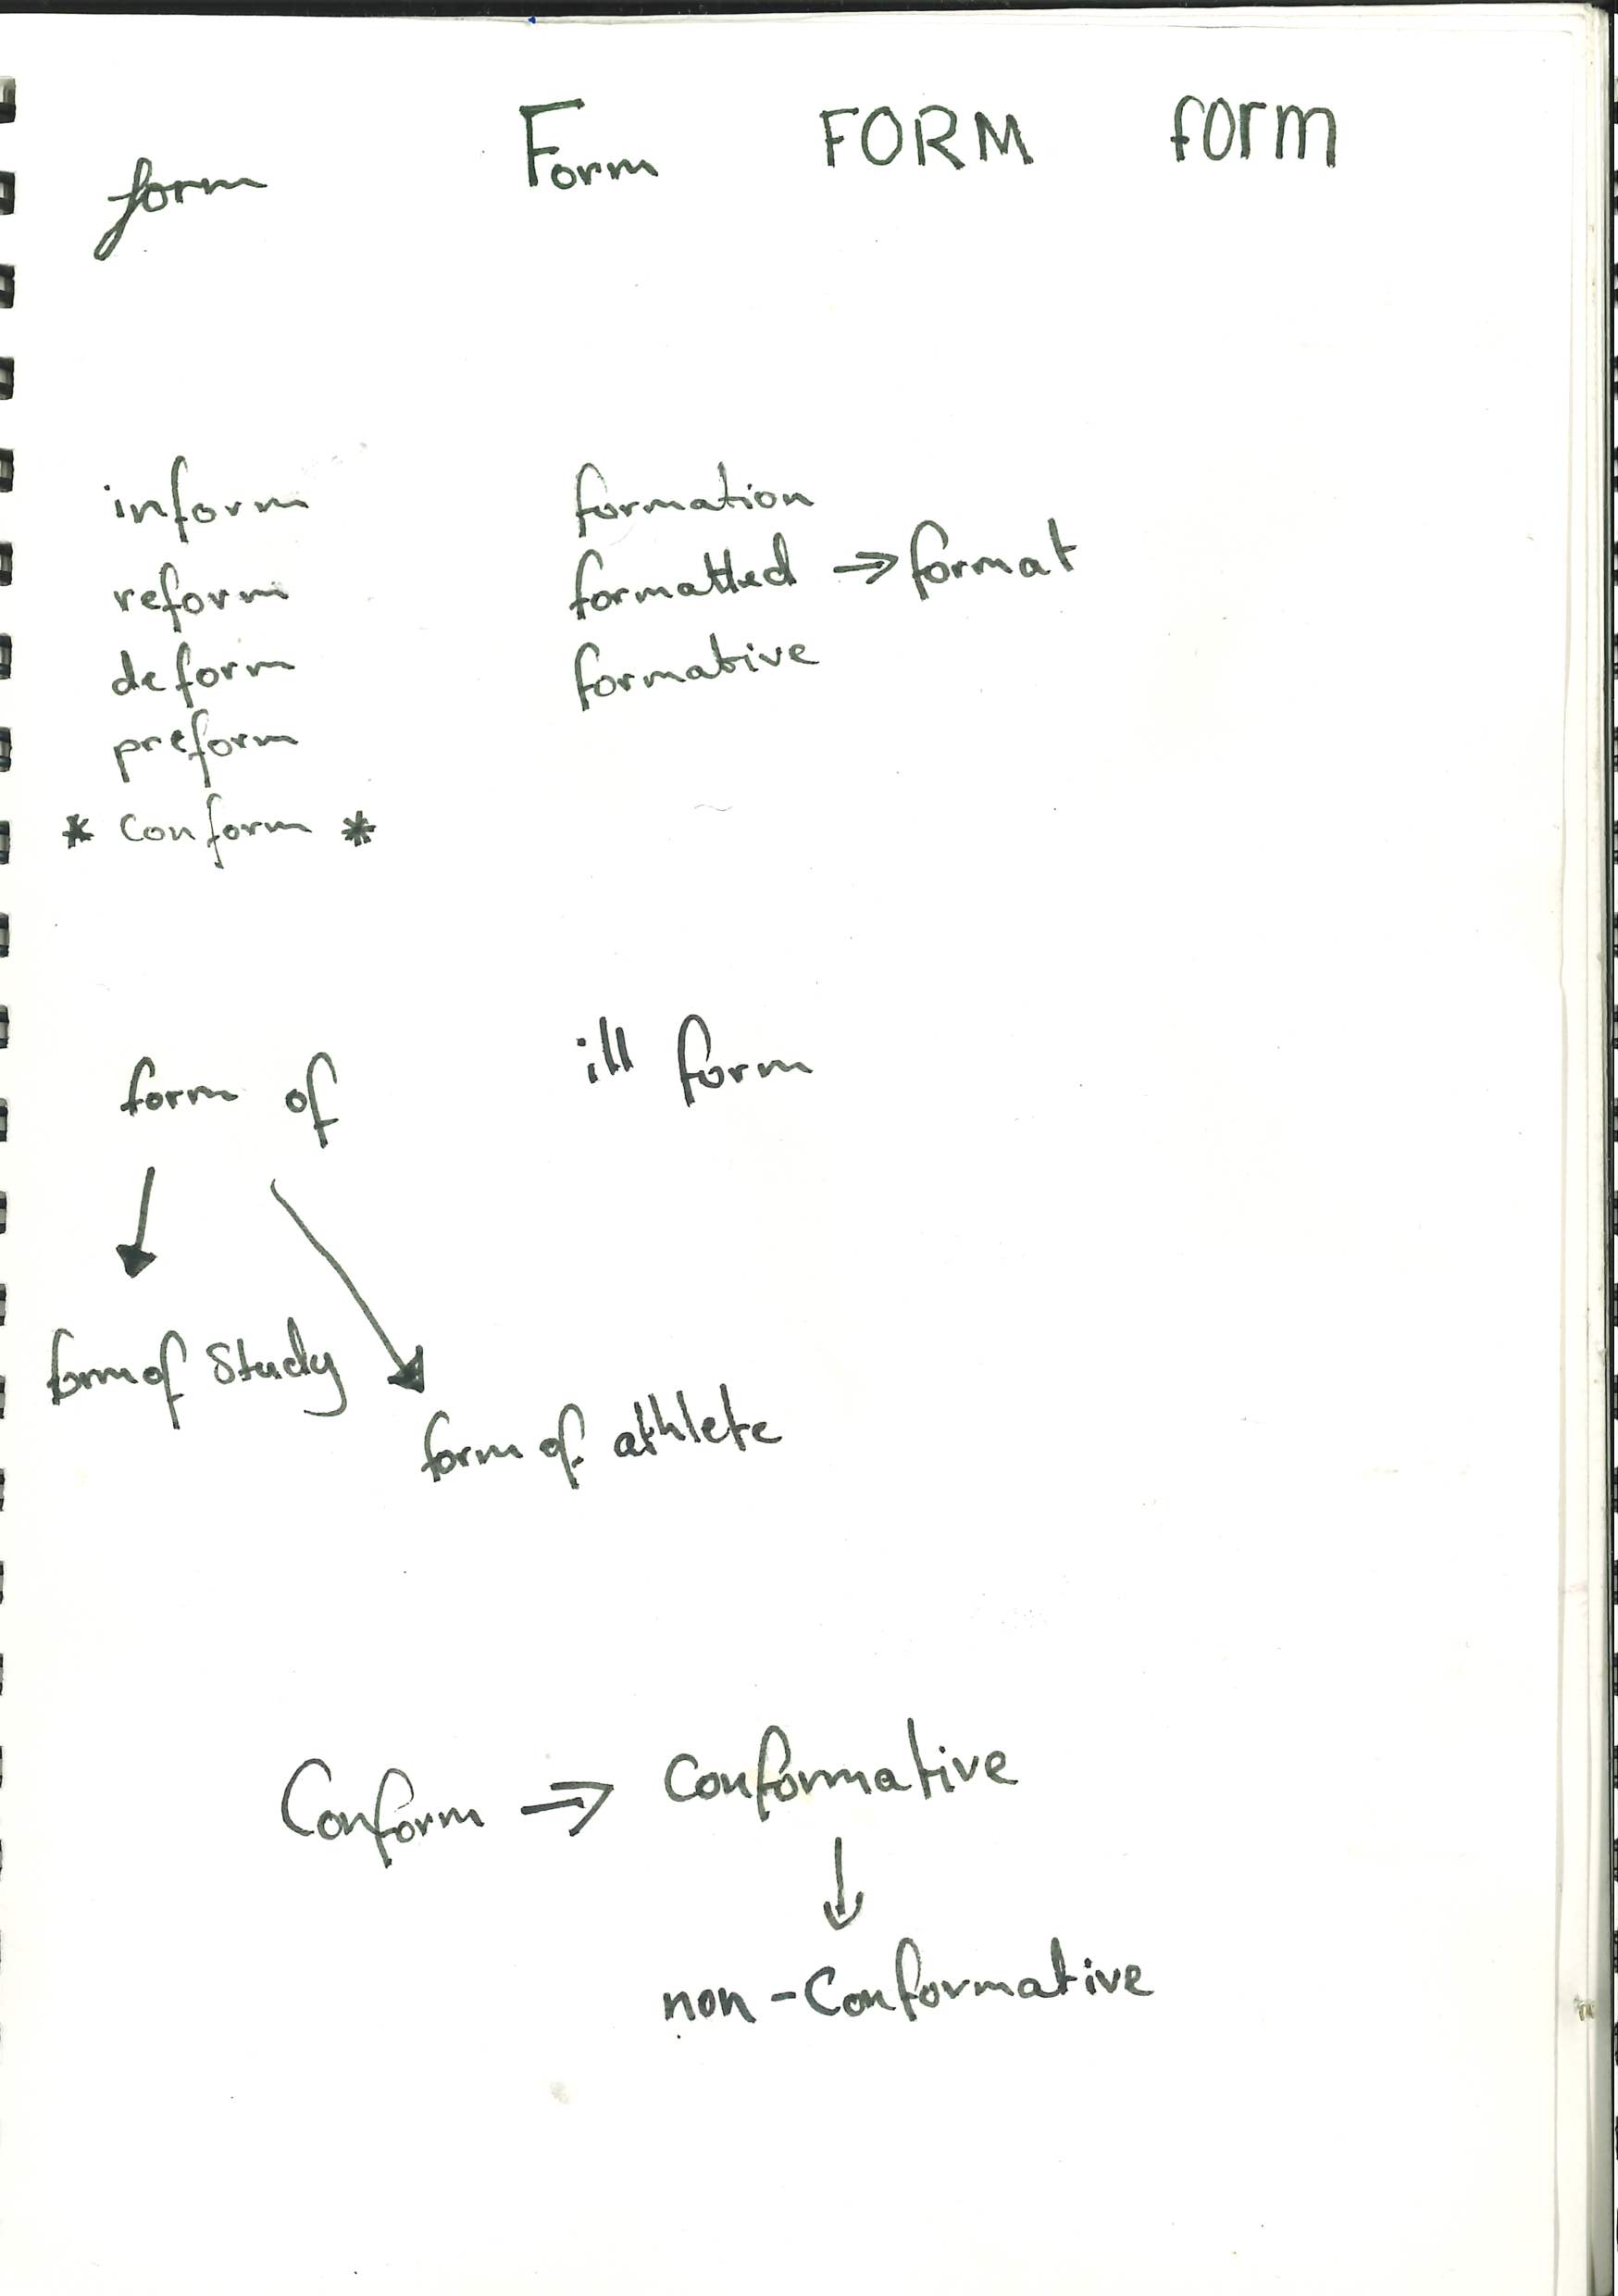 form Form FORM form
inform formation
reform formatted → format
deform formative
preform
* conform *
form of ill form
↓
form of study
form of athlete
Conform → Conformative
↓
non-Conformative